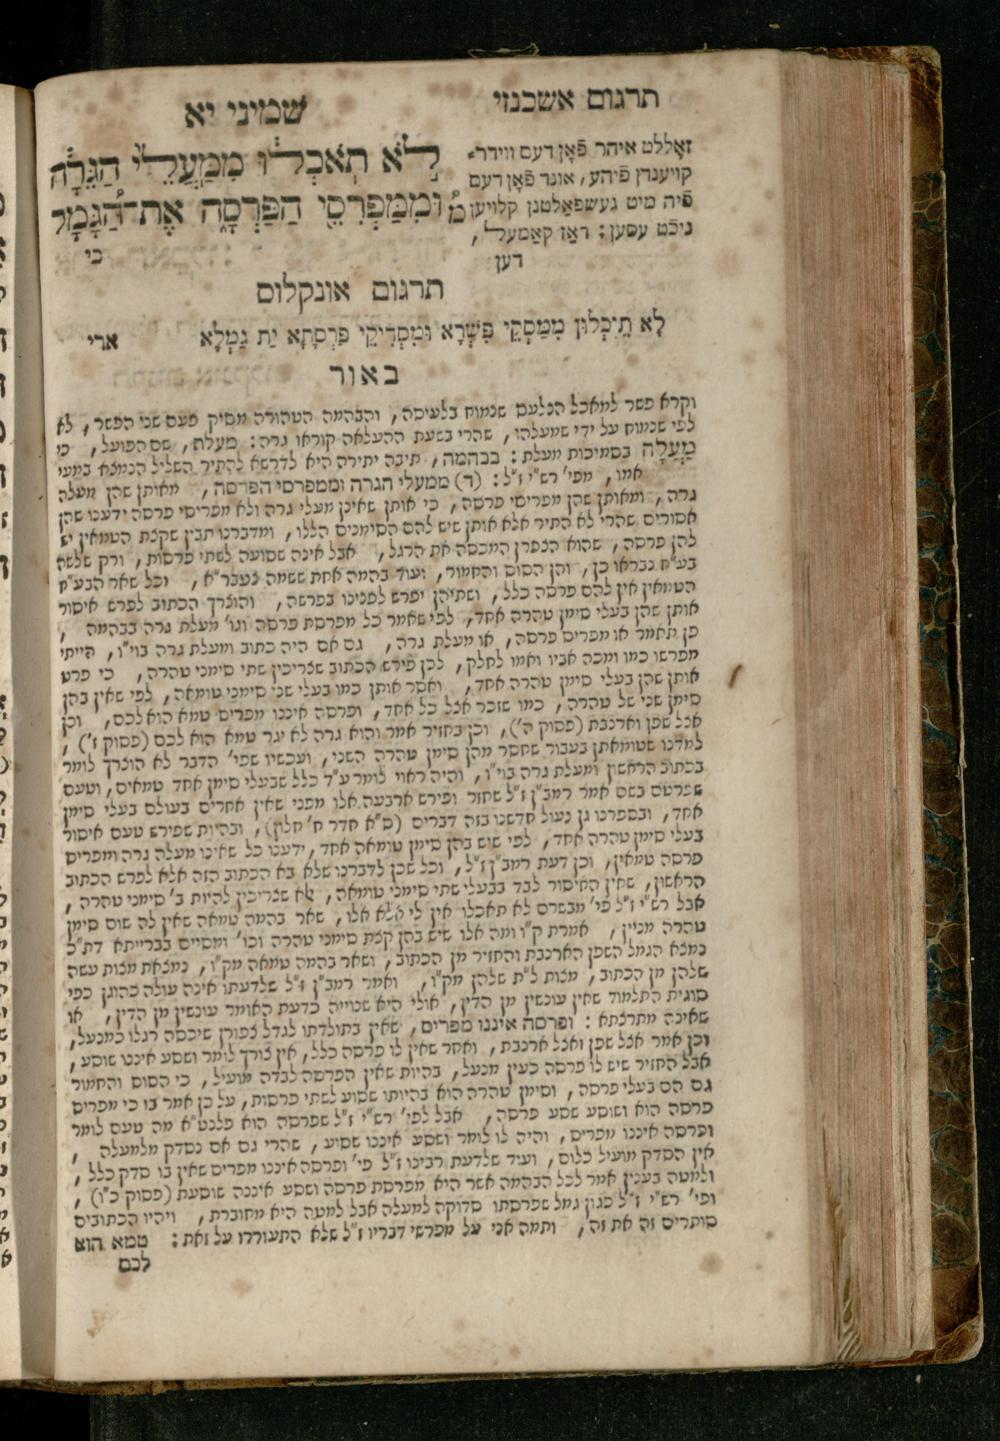 תרגום אשכנזי
שמיני יא
זאָללט איהר פֿאָן דעם ווידר־
קויענדן פֿיהע, אונד פֿאָן דעם
פֿיה מיט געשפאַלטנן קלויען
ניכֿט עסען: דאַז קאַמעל,
דען
לֹא תֹאכְלוּ מִמַּעֲלֵי הַגֵּרָה
וּמִמַּפְרִסֵי הַפַּרְסָה אֶת־הַגָּמָל
כי
תרגום אונקלוס
לָא תֵיכְלוּן מִמַּסְּקֵי פִּשְׁרָא וּמִסְּדִיקֵי פַּרְסָתָא יַת גַּמְלָא ארי
באור
וקרא פשר למאכל הנלעס שנמוח בלעיסה, והבהמה הטהורה מסיק פעם שני הפשר, לא
לפי שנמוח על ידי שמעלהו, שהרי בשעת ההעלאה קוראו גרה: מעלת, שם הפועל, כי
מַעֲלָה בסמיכות מעלת: בבהמה, תיבה יתירה היא לדרשא להתיר השליל הנמצא במעי
אמו, מפי' רש"י ז"ל: (ד) ממעלי הגרה וממפרסי הפרסה, מאותן שהן מעלה
גרה, ומאותן שהן מפריסי פרסה, כי אותן שאינן מעלי גרה ולא מפריסי פרסה ידענו שהן
אסורים שהרי לא התיר אלא אותן שיש להם הסימנים הללו, ומדברנו תבין שקצת הטמאין יש
להן פרסה, שהוא הצפרן המכסה את הרגל, אבל אינה שסועה לשתי פרסות, ורק שלשה
בע"ח נבראו כן, והן הסוס והחמור, ועוד בהמה אחת ששמה צעברא, וכל שאר הבע"ח
הטמאין אין להם פרסה כלל, ושתיהן יפרש לפנינו בפרשה, והוצרך הכתוב לפרש איסור
אותן שהן בעלי סימן טהרה אחד, לפי שאמר כל מפרסת פרסה וגו' מעלת גרה בבהמה,
פן תאמר או מפריס פרסה, או מעלת גרה, גם אם היה כתוב ומעלת גרה בוי"ו, הייתי
מפרשו כמו ומכה אביו ואמו לחלק, לכן פירש הכתוב שצריכין שתי סימני טהרה, כי פרט
אותן שהן בעלי סימן טהרה אחד, ואסר אותן כמו בעלי שני סימני טומאה, לפי שאין בהן
סימן שני של טהרה, כמו שזכר אצל כל אחד, ופרסה איננו מפריס טמא הוא לכם, וכן
אצל שפן וארנבת (פסוק ה'), וכן בחזיר אמר והוא גרה לא יגר טמא הוא לכם (פסוק ז'),
למדנו שטומאתן בעבור שחסר מהן סימן טהרה השני, ועכשיו שפי' הדבר לא הוצרך לומר
בכתוב הראשון ומעלת גרה בוי"ו, והיה ראוי לומר ע"ד כלל שבעלי סימן אחד טמאים, וטעם
שפרטם בשם אמר רמב"ן ז"ל שחזר ופירש ארבעה אלו מפני שאין אחרים בעולם בעלי סימן
אחד, ובספרנו גן נעול חדשנו בזה דברים (ס"א חדר ח' חלון), ובהיות שפירש טעם איסור
בעלי סימן טהרה אחד, לפי שיש בהן סימן טומאה אחד, ידענו כל שאינו מעלה גרה ומפריס
פרסה טמאין, וכן דעת רמב"ן ז"ל, וכל שכן לדברנו שלא בא הכתוב הזה אלא לפרש הכתוב
הראשון, שאין האיסור לבד בבעלי שתי סימני טומאה, לא שצריכין להיות ב' סימני טהרה,
אבל רש"י ז"ל פי' מבשרם לא תאכלו אין לי אלא אלו, שאר בהמה טמאה שאין לה שום סימן
טהרה מניין, אמרת ק"ו ומה אלו שיש בהן קצת סימני טהרה וכו' ומסיים בברייתא דת"כ
נמצא הגמל השפן הארנבת והחזיר מן הכתוב, ושאר בהמה טמאה מק"ו, נמצאת מצות עשה
שלהן מן הכתוב, מצות ל"ת שלהן מק"ו, ואמר רמב"ן ז"ל שלדעתו אינה עולה כהוגן כפי
סוגית התלמוד שאין עונשין מן הדין, אולי היא שנוייה כדעת האומר עונשין מן הדין, או
שאינה מתרצתא: ופרסה איננו מפריס, שאין בתולדתו לגדל צפורן שיכסה רגלו כמנעל,
וכן אמר אצל שפן ואצל ארנבת, ואחר שאין לו פרסה כלל, אין צורך לומר ושסע איננו שוסע,
אבל החזיר שיש לו פרסה כעין מנעל, בהיות שאין הפרסה לבדה מועיל, כי הסוס והחמור
גם הם בעלי פרסה, וסימן טהרה הוא בהיותו שסוע לשתי פרסות, על כן אמר בו כי מפריס
פרסה הוא ושוסע שסע פרסה, אבל לפי' רש"י ז"ל שפרסה הוא פלנט"א מה טעם לומר
ופרסה איננו מפריס, והיה לו לומר ושסע איננו שסוע, שהרי גם אם נסדק מלמעלה,
אין הסדק מועיל כלום, ועיד שלדעת רבינו ז"ל פי' ופרסה איננו מפריס שאין בו סדק כלל,
ולמטה בענין אמר לכל הבהמה אשר היא מפרסת פרסה ושסע איננה שוסעת (פסוק כ"ו),
ופי' רש"י ז"ל כגון גמל שפרסתו סדוקה למעלה אבל למטה היא מחוברת, ויהיו הכתובים
סותרים זה את זה, ותמה אני על מפרשי דבריו ז"ל שלא התעוררו על זאת: טמא הוא
לכם